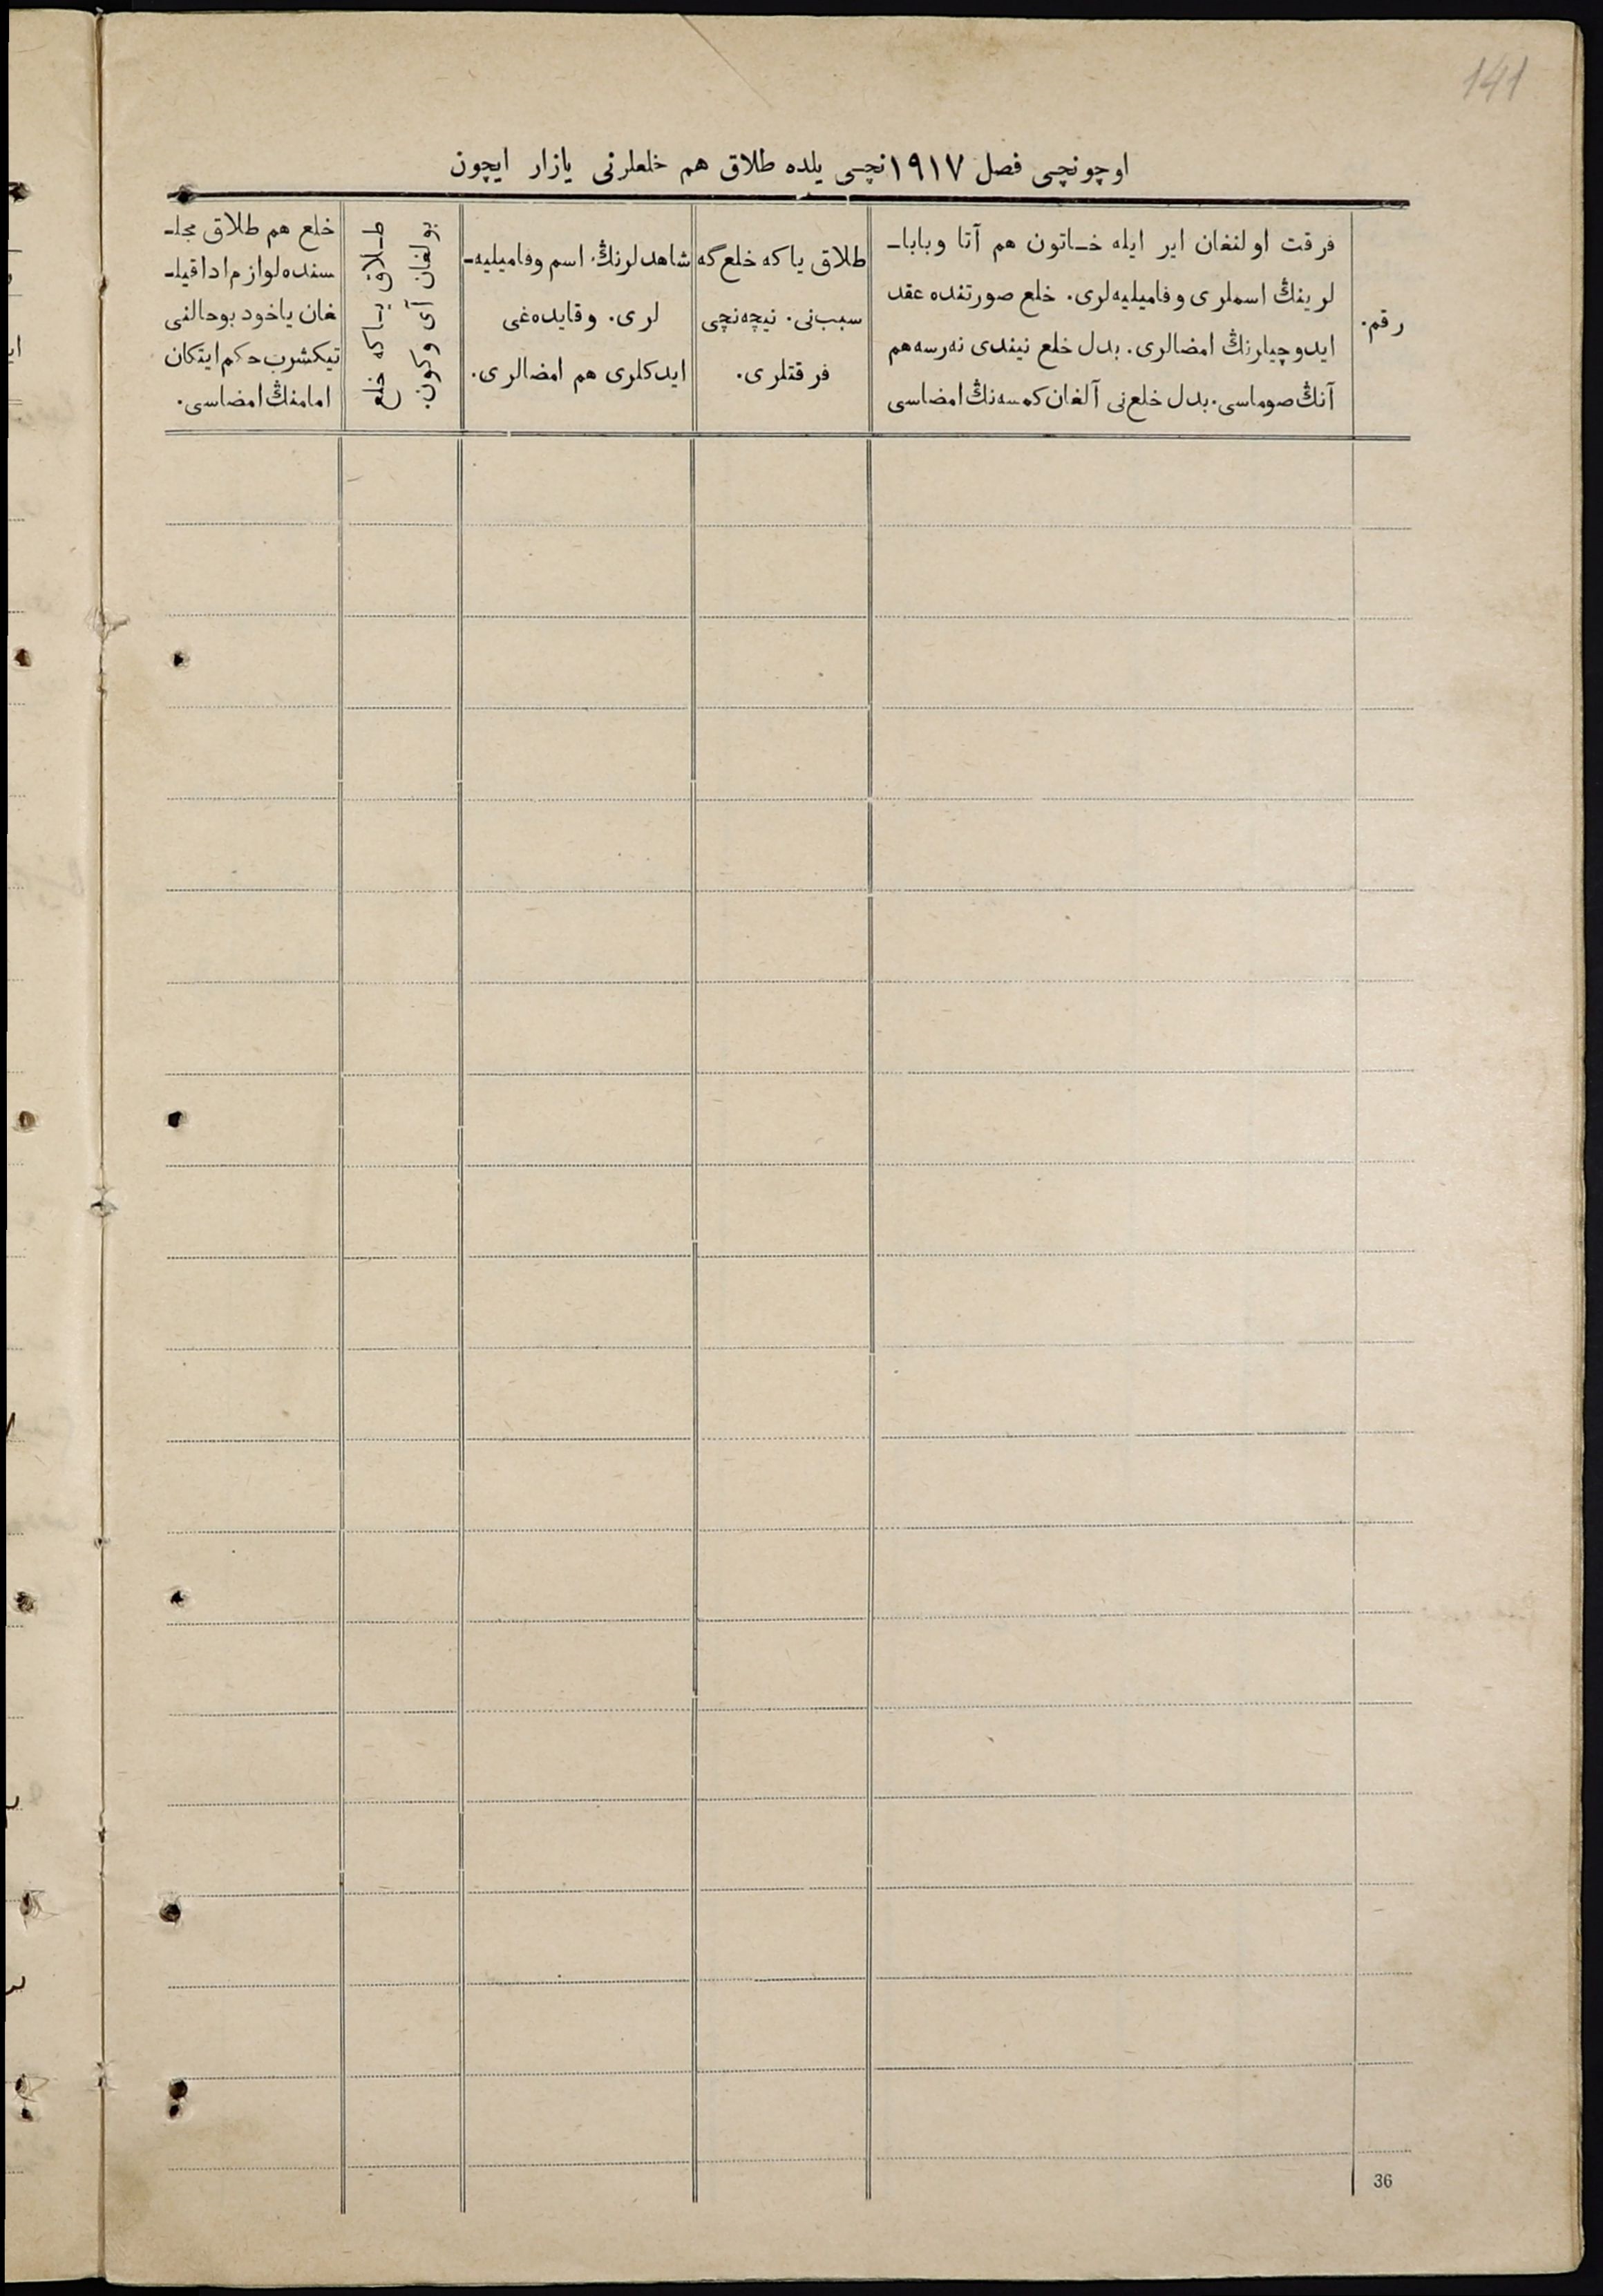 141
اوچونچی فصل ١٩١٧نچی یلده طلاق هم خلعلرنی یازار ایچون
رقم.
فرقت اولنغان ایر ایله خـاتون هم آتا وبابا-
لرینڭ اسملری وفامیلیه‌لری. خلع صورتنده عقد
ایدوچیلرنڭ امضالری. بدل خلع نیندی نه‌رسه هم
آنڭ صوماسی. بدل خلع‌نی آلغان کمسه‌نڭ امضاسی
طلاق یا که خلع گه
سبب‌نی. نیچه‌نچی
فرقتلری.
شاهدلرنڭ اسم وفامیلیه-
لری. وقایده‌غی
ایدکلری هم امضالری.
بولغان آی وکون.
طـلاق یـاکه خلع
خلع هم طلاق مجلـ-
سنده لوازم ادا قیلـ-
غان یاخود بوحالنی
تیکشرب حکم ایتکان
امامنڭ امضاسی.
36